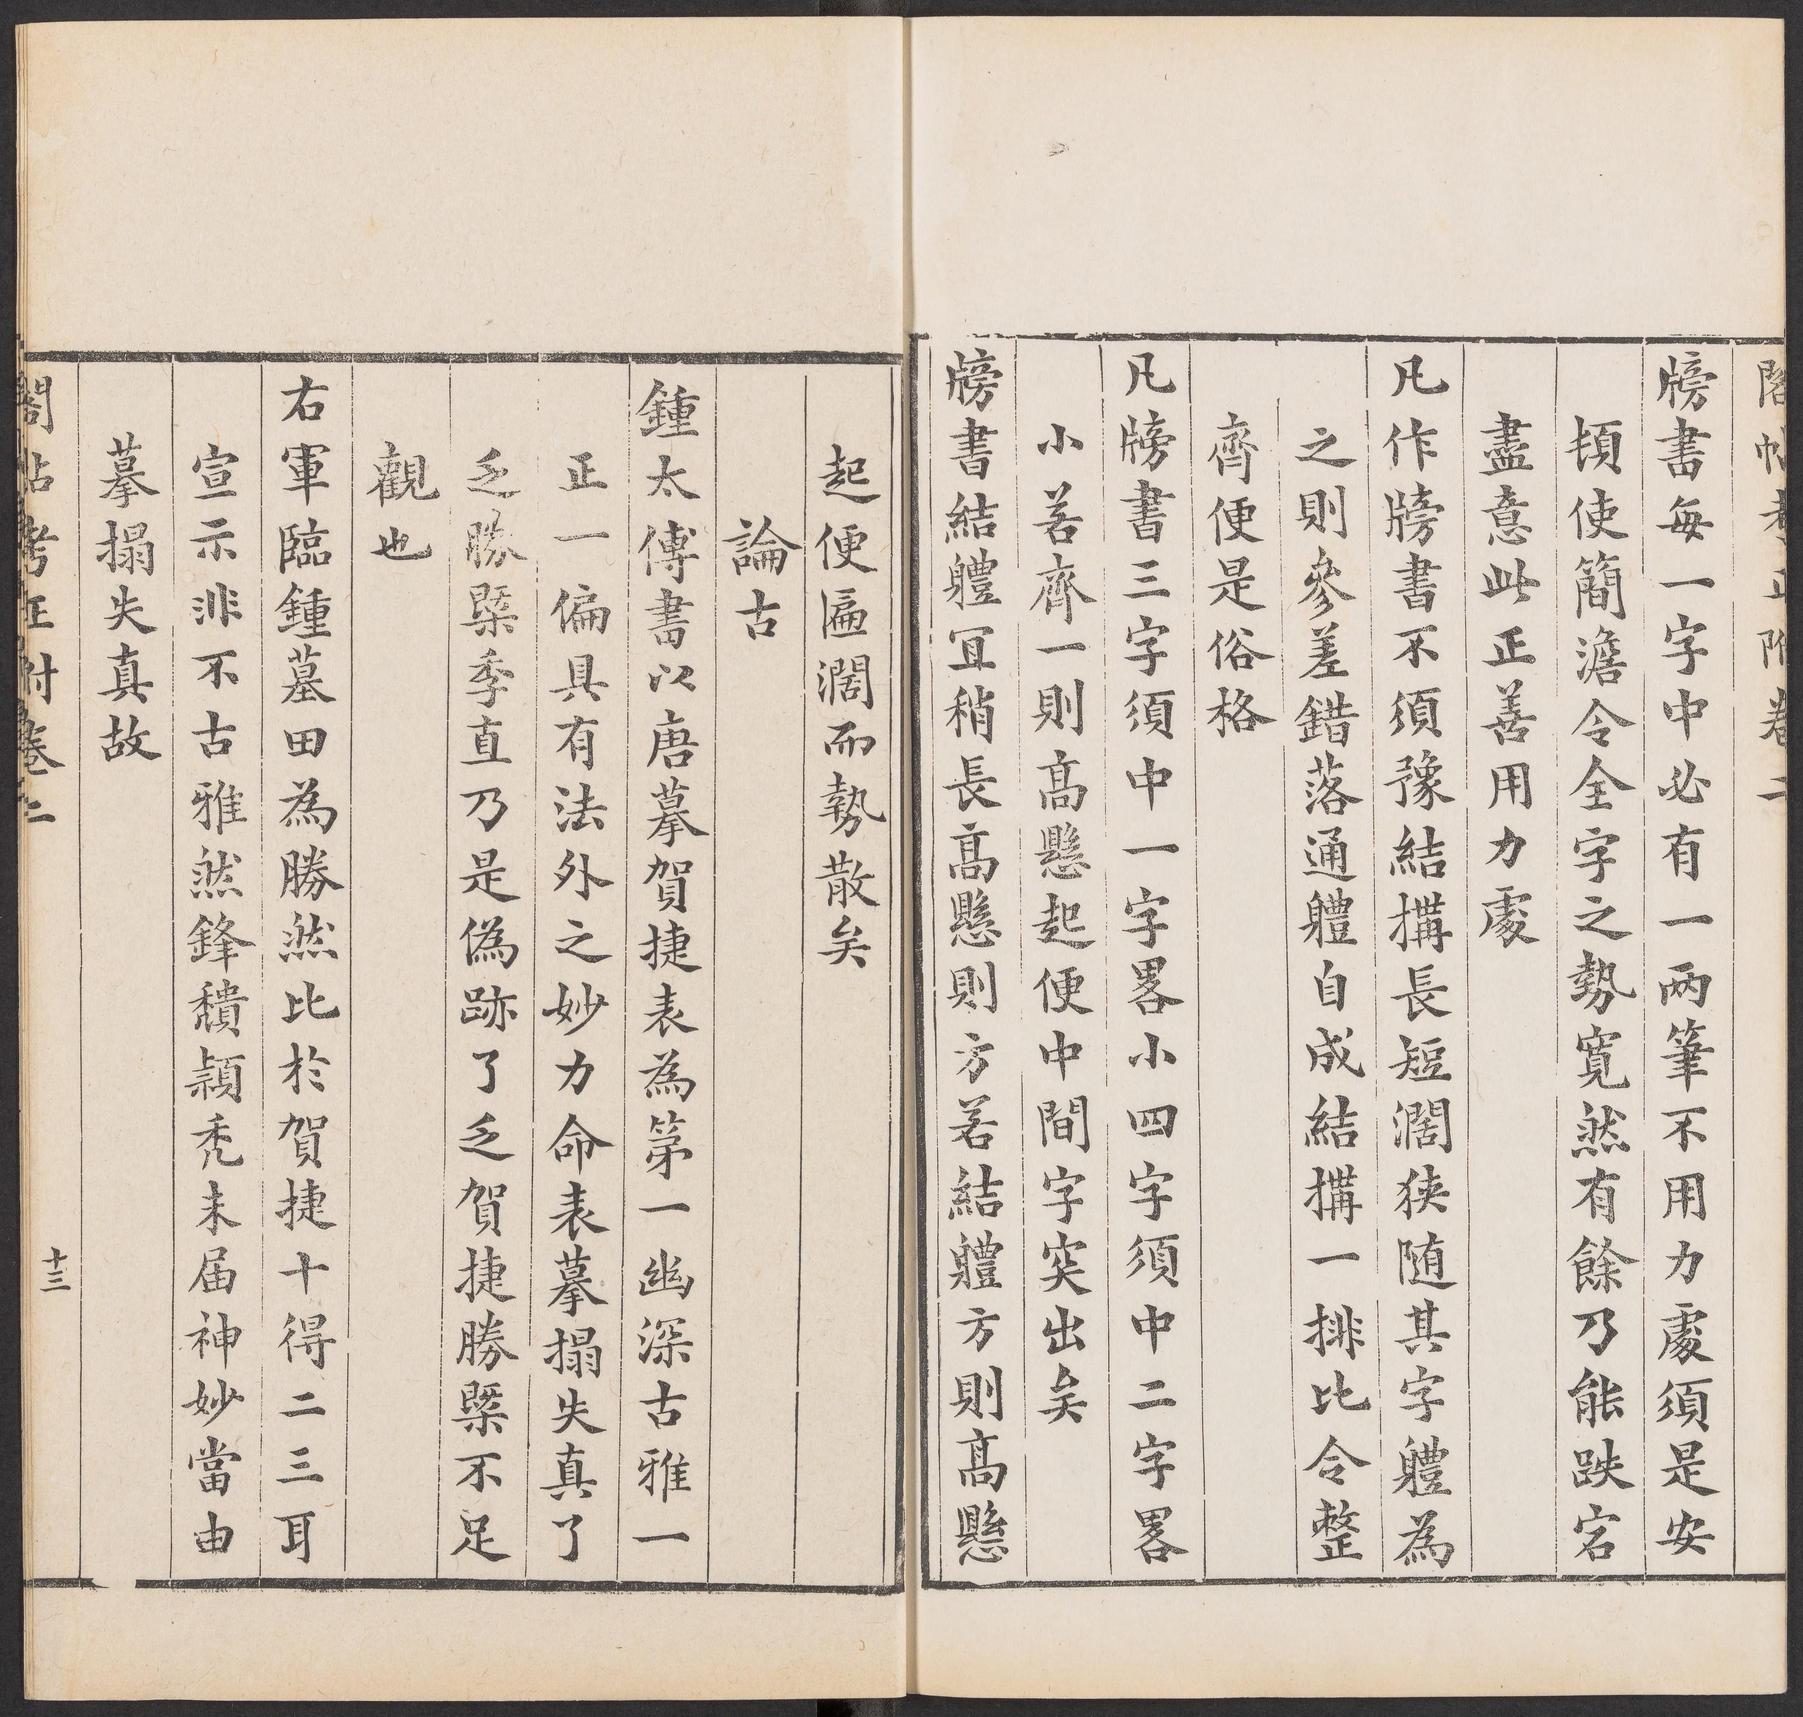 閣帖考正附卷二
牓書每一字中必有一兩筆不用力處須是安
頓使簡澹令全字之勢寬然有餘乃能跌宕
盡意此正善用力處
凡作牓書不須豫結搆長短濶狹随其字軆為
之則參差錯落通軆自成結搆一排比令整
齊便是俗格
凡牓書三字須中一字畧小四字須中二字畧
小若齊一則髙懸起便中間字突出矣
牓書結軆宜稍長髙懸則方若結軆方則髙懸
起便匾濶而勢散矣
論古
鍾太傅書以唐摹賀捷表為第一幽深古雅一
正一偏具有法外之妙力命表摹搨失真了
乏勝槩季直乃是偽跡了乏賀捷勝槩不足
觀也
右軍臨鍾墓田為勝然比於賀捷十得二三耳
宣示非不古雅然鋒穨穎秃未届神妙當由
摹搨失真故
閣帖考正附卷二
十三